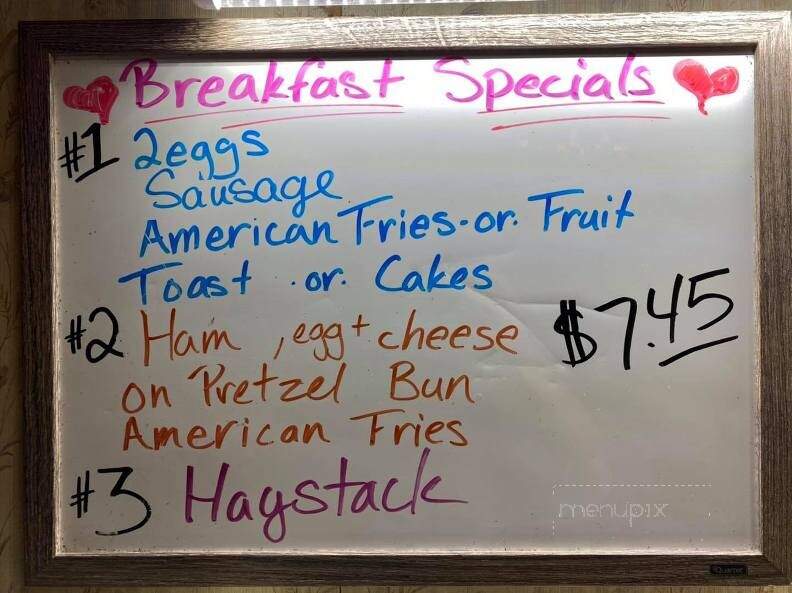 Breakfast Specials
#1 2eggs
Sausage
American Fries-or. Fruit
Toast .or. Cakes
#2 Ham , egg + cheese $7.45
on Pretzel Bun
American Fries
#3 Haystack
menupix
Quartet